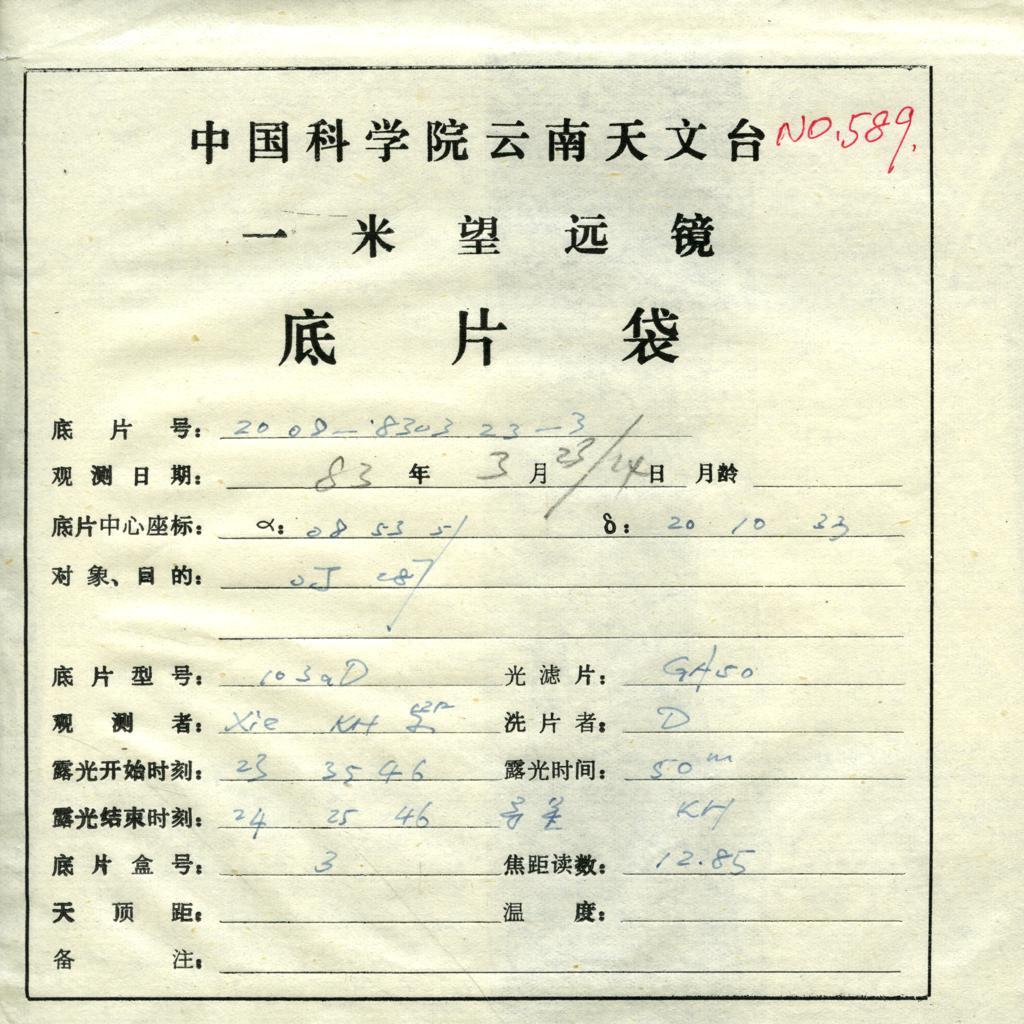 中国科学院云南天文台 NO.589.
一米望远镜
底片袋
底片号: 2008-830323-3
观测日期: 83年 3月 23/24日 月龄
底片中心座标: α: 08 53 51 δ: 20 10 33
对象、目的: OJ 287
底片型号: 103aD 光滤片: GG
观测者: Xie KH 洗片者: D
露光开始时刻: 23 35 46 露光时间: 50m
露光结束时刻: 24 25 46 KH
底片盒号: 3 焦距读数: 12.85
天顶距: 温度:
备注: